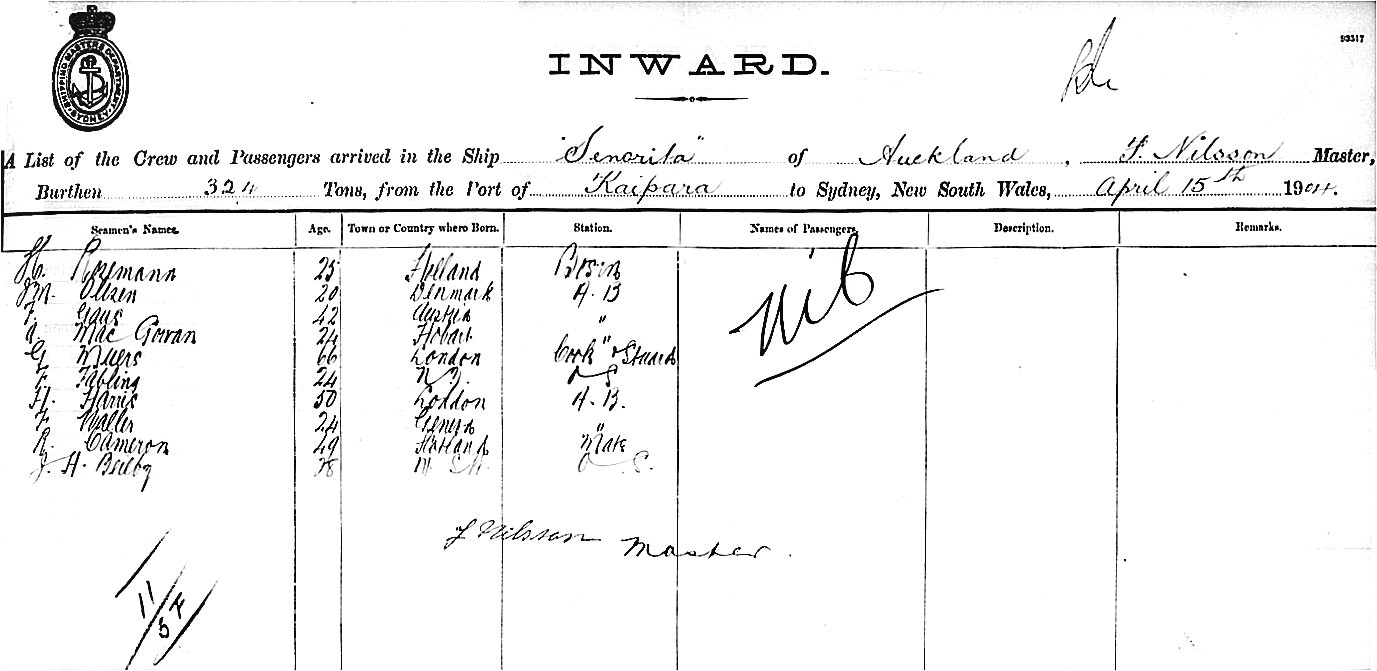 SHIPPING MASTERS DEPARTMENT
SYDNEY
93517
INWARD.
A List of the Crew and Passengers arrived in the Ship "Senorita" of Auckland, F. Nilsson Master,
Burthen 324 Tons, from the Port of Kaipara to Sydney, New South Wales, April 15th 1904.
Seamen's Names. Age. Town or Country where Born. Station. Names of Passengers. Description. Remarks.
H. Rosemann 25 Holland Bosun
Olesen 20 Denmark A. B
42 Austria "
Mac Gowan 24 Hobart "
G. Myers 66 London Cook & Steward
F. Tabling 24 N.Z. O S
H. Harris 50 London A. B.
F. Waller 24 Geneva "
R. Cameron 49 Scotland Mate
J. H. Beilby 28 O. S.
Nil
F Nilsson Master.
11/5